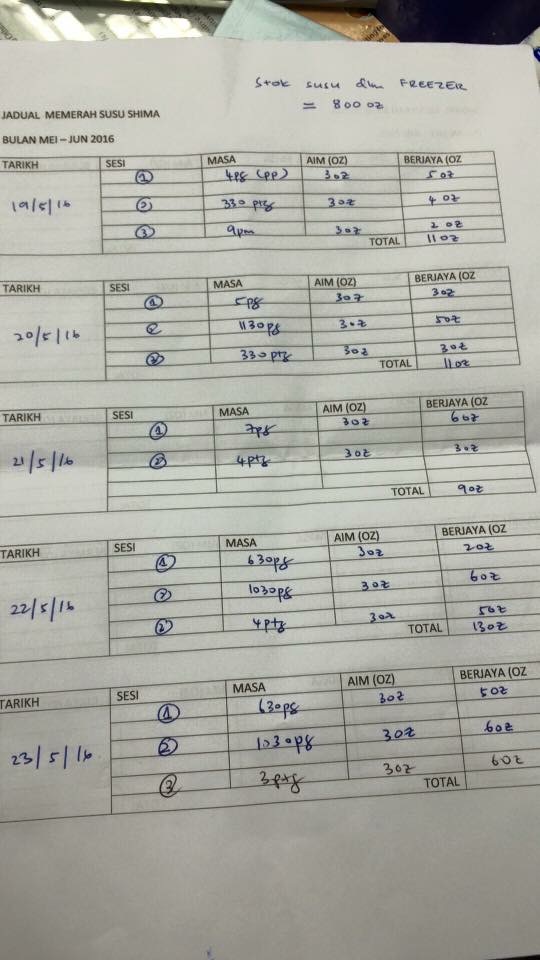 Stok susu dlm FREEZER
= 800 oz
JADUAL MEMERAH SUSU SHIMA
BULAN MEI – JUN 2016
TARIKH SESI MASA AIM (OZ) BERJAYA (OZ
19/5/16 1 4pg (pp) 3oz 5oz
2 330 ptg 3oz 4oz
3 9pm 3oz 2oz
TOTAL 11oz
TARIKH SESI MASA AIM (OZ) BERJAYA (OZ
20/5/16 1 5pg 3oz 3oz
2 1130pg 3oz 5oz
3 330ptg 3oz 3oz
TOTAL 11oz
TARIKH SESI MASA AIM (OZ) BERJAYA (OZ
21/5/16 1 7pg 3oz 6oz
2 4ptg 3oz 3oz
TOTAL 9oz
TARIKH SESI MASA AIM (OZ) BERJAYA (OZ
22/5/16 1 630pg 3oz 2oz
2 1030pg 3oz 6oz
2 4ptg 3oz 5oz
TOTAL 13oz
TARIKH SESI MASA AIM (OZ) BERJAYA (OZ
23/5/16 1 630pg 3oz 5oz
2 1030pg 3oz 6oz
3 3ptg 3oz 6oz
TOTAL